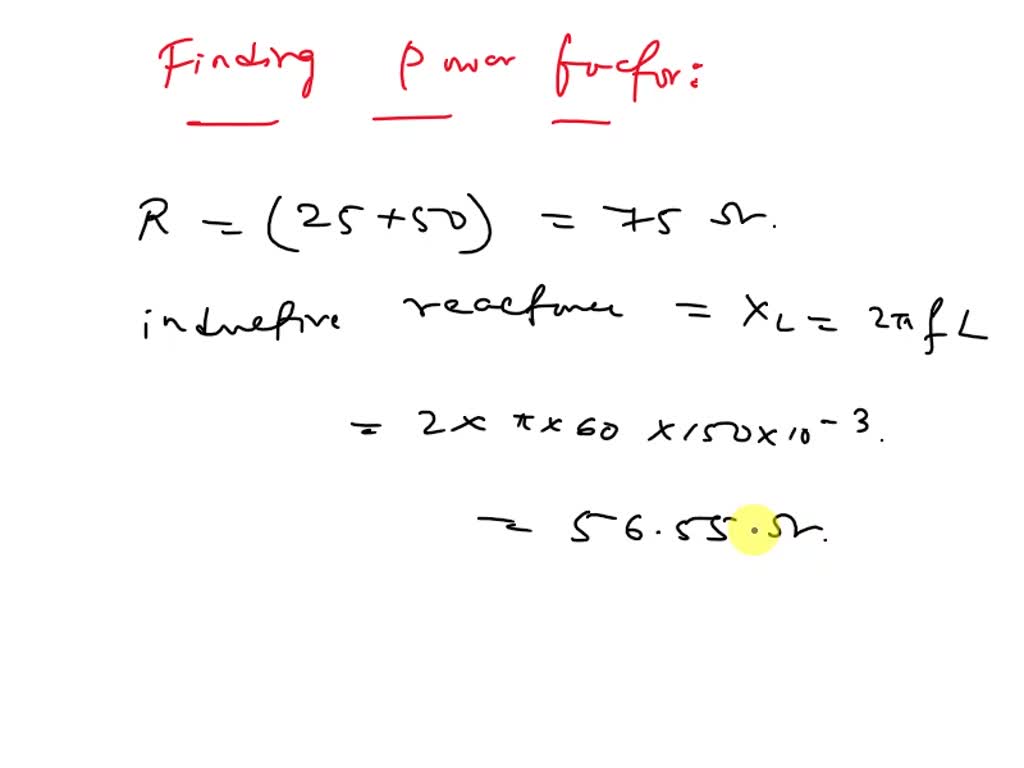 Finding Power factor:
R = (25+50) = 75 Ω.
inductive reactance = X_L = 2πfL
= 2 × π × 60 × 150 × 10^-3.
= 56.55 Ω.